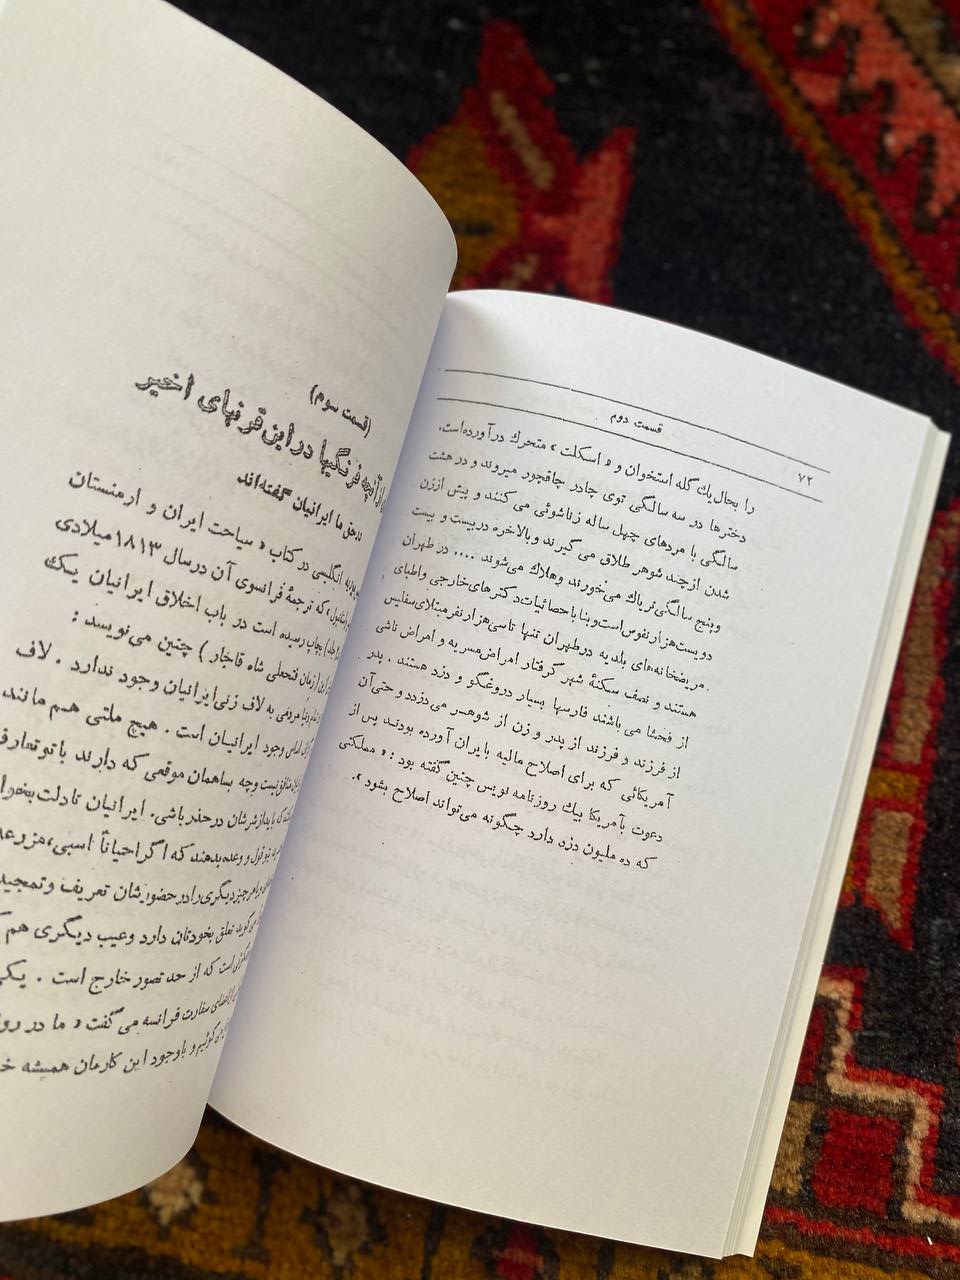 ۷۲
قسمت دوم
را بحال یك گله استخوان و « اسکلت » متحرك درآورده‌است.
دخترها در سه سالگی توی چادر چاقچور میروند و در هشت
سالگی با مردهای چهل ساله زناشوئی می کنند و پیش اززن
شدن ازچند شوهر طلاق می گیرند وبالاخره دربیست و بیست
وپنج سالگی تریاك می‌خورند وهلاك می‌شوند .... در طهران
دویست‌هزار نفوس‌است وبنا باحصائیات دکترهای خارجی واطبای
مریضخانه‌های بلدیه درطهران تنها تاسی‌هزار نفر مبتلای سفلیس
هستند و نصف سکنهٔ شهر گرفتار امراض مسریه و امراض ناشی
از فحشا می باشند فارسها بسیار دروغگو و دزد هستند . پدر
از فرزند و فرزند از پدر و زن از شوهر می دزدد و حتی آن
آمریکائی که برای اصلاح مالیه با یران آورده بودند پس از
دعوت بآمریکا بیك روزنامه نویس چنین گفته بود : « مملکتی
که ده ملیون دزد دارد چگونه می‌تواند اصلاح بشود ».
(قسمت سوم)
آنچه فرنگیها در این قرنهای اخیر
درحق ما ایرانیان گفته‌اند
انگلیسی در کتاب « سیاحت ایران و ارمنستان
که ترجمهٔ فرانسوی آن درسال ۱۸۱۳ میلادی
بچاپ رسیده است در باب اخلاق ایرانیان یك
(زمان فتحعلی شاه قاجار ) چنین می‌نویسد :
مردمی به لاف زنی ایرانیان وجود ندارد . لاف
اساس وجود ایرانیان است . هیچ ملتی هم مانند
منافق نیست وچه بساهمان موقعی که دارند باتوتعارف
که بایدازشرشان درحذرباشی. ایرانیان تادلت‌بخواهد
قول و وعده‌بدهند که اگراحیاناً اسبی، مزرعه
چیزدیگری‌رادرحضورشان تعریف وتمجید
می‌گویند تعلق بخودتان دارد وعیب دیگری هم که
است که از حد تصور خارج است . یکی
سفارت فرانسه می گفت « ما در روز
گوئیم و باوجود این کارمان همیشه